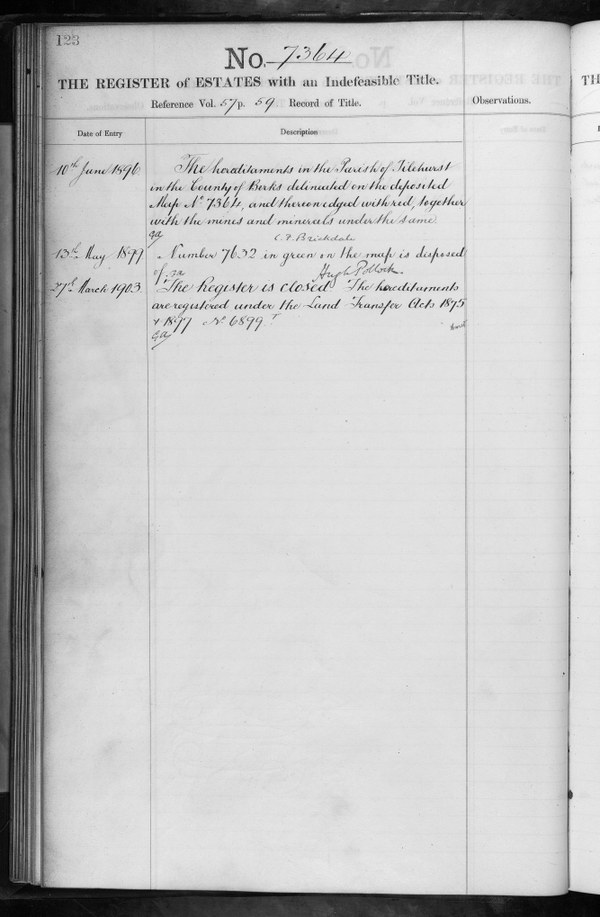 123
No. 7364
THE REGISTER of ESTATES with an Indefeasible Title.
Reference Vol. 57 p. 59 Record of Title.
Observations.
Date of Entry
Description
10th June 1896
The hereditaments in the Parish of Tilehurst
in the County of Berks delineated on the deposited
Map No 7364, and thereon edged with red, together
with the mines and minerals under the same.
C. F. Brickdale
13th May 1899
Number 7632 in green on the map is disposed
of
Hugh Pollock.
27th March 1903
The Register is closed The hereditaments
are registered under the Land Transfer Acts 1875
& 1897 No 6899
TH